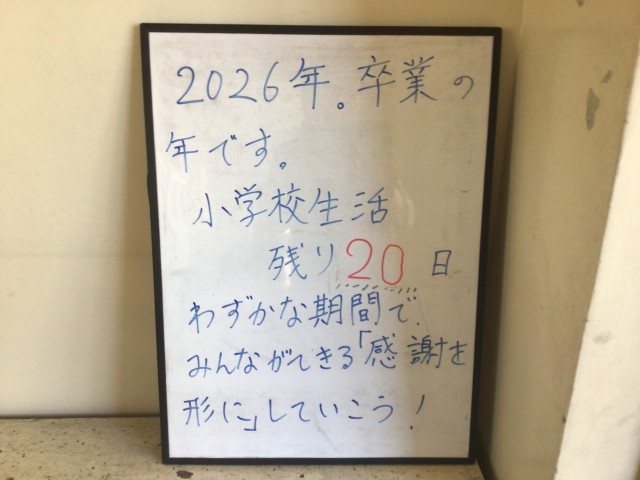 2026年。卒業の
年です。
小学校生活
残り20日
わずかな期間で、
みんなができる「感謝を
形に」していこう!